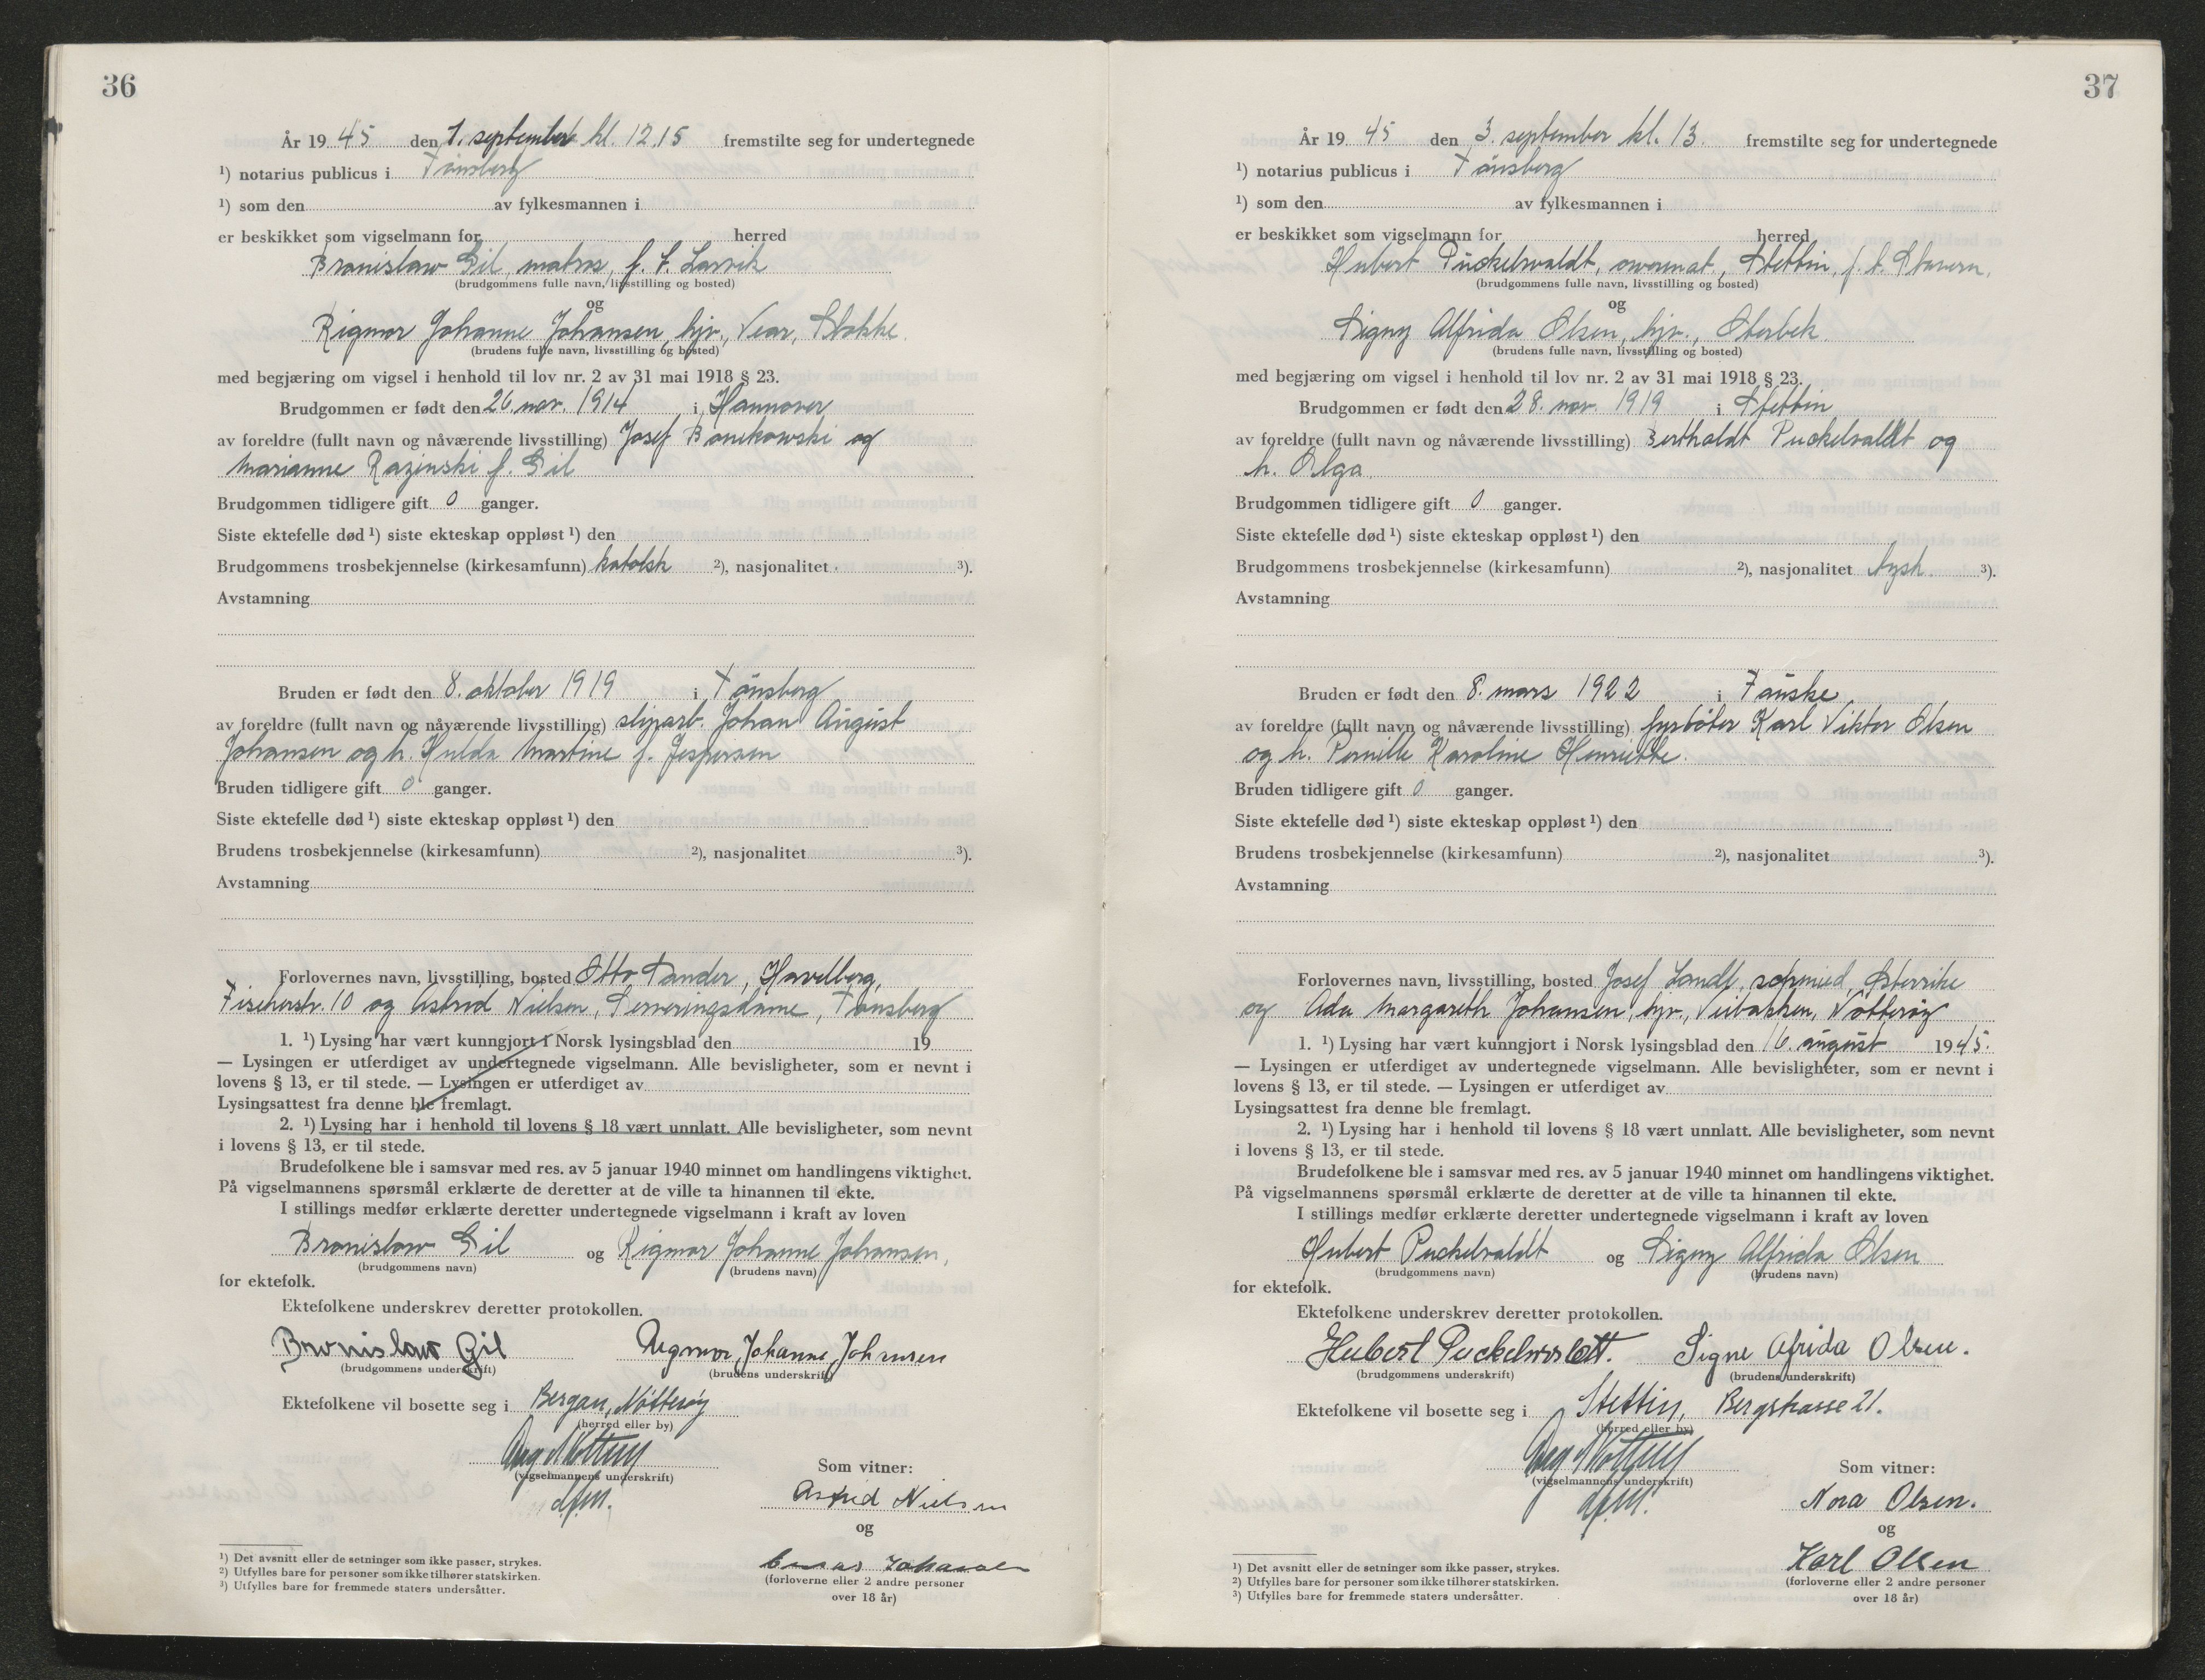 36
År 19 45 den 1. september kl. 12.15 fremstilte seg for undertegnede
¹) notarius publicus i Tønsberg
¹) som den av fylkesmannen i
er beskikket som vigselmann for herred
Bronislaw Gil, matros, f. t. Larvik
(brudgommens fulle navn, livsstilling og bosted)
og
Rigmor Johanne Johansen, hjv., Vear, Stokke.
(brudens fulle navn, livsstilling og bosted)
med begjæring om vigsel i henhold til lov nr. 2 av 31 mai 1918 § 23.
Brudgommen er født den 26. nov. 1914 i Hannover
av foreldre (fullt navn og nåværende livsstilling) Josef Bonikowski og
Marianne Razinski f. Gil
Brudgommen tidligere gift 0 ganger.
Siste ektefelle død ¹) siste ekteskap oppløst ¹) den
Brudgommens trosbekjennelse (kirkesamfunn) katolsk ²), nasjonalitet ³).
Avstamning
Bruden er født den 8. oktober 1919 i Tønsberg
av foreldre (fullt navn og nåværende livsstilling) sliparb. Johan August
Johansen og h. Hulda Martine f. Jespersen
Bruden tidligere gift 0 ganger.
Siste ektefelle død ¹) siste ekteskap oppløst ¹) den
Brudens trosbekjennelse (kirkesamfunn) ²), nasjonalitet ³).
Avstamning
Forlovernes navn, livsstilling, bosted Otto Tander, Havelberg,
Fischerstr. 10 og Astrid Nielsen, Serveringsdame, Tønsberg
1. ¹) Lysing har vært kunngjort i Norsk lysingsblad den 19
— Lysingen er utferdiget av undertegnede vigselmann. Alle bevisligheter, som er nevnt i
lovens § 13, er til stede. — Lysingen er utferdiget av
Lysingsattest fra denne ble fremlagt.
2. ¹) Lysing har i henhold til lovens § 18 vært unnlatt. Alle bevisligheter, som nevnt
i lovens § 13, er til stede.
Brudefolkene ble i samsvar med res. av 5 januar 1940 minnet om handlingens viktighet.
På vigselmannens spørsmål erklærte de deretter at de ville ta hinannen til ekte.
I stillings medfør erklærte deretter undertegnede vigselmann i kraft av loven
Bronislaw Gil og Rigmor Johanne Johansen,
(brudgommens navn) (brudens navn)
for ektefolk.
Ektefolkene underskrev deretter protokollen.
Bronislaw Gil Rigmor Johanne Johansen
(brudgommens underskrift) (brudens underskrift)
Ektefolkene vil bosette seg i Bergan, Nøtterøy
(herred eller by)
(vigselmannens underskrift)
Som vitner:
d.f.m.
Astrid Nielsen
og
(forloverne eller 2 andre personer
over 18 år)
¹) Det avsnitt eller de setninger som ikke passer, strykes.
²) Utfylles bare for personer som ikke tilhører statskirken.
³) Utfylles bare for fremmede staters undersåtter.
37
År 19 45 den 3. september kl. 13. fremstilte seg for undertegnede
¹) notarius publicus i Tønsberg
¹) som den av fylkesmannen i
er beskikket som vigselmann for herred
Hubert Puckelwaldt, Stettin, f. t. Stavern.
(brudgommens fulle navn, livsstilling og bosted)
og
Signy Alfrida Olsen, hjv., Oterbek.
(brudens fulle navn, livsstilling og bosted)
med begjæring om vigsel i henhold til lov nr. 2 av 31 mai 1918 § 23.
Brudgommen er født den 28. nov. 1919 i Stettin
av foreldre (fullt navn og nåværende livsstilling) Bertholdt Puckelwaldt og
h. Olga.
Brudgommen tidligere gift 0 ganger.
Siste ektefelle død ¹) siste ekteskap oppløst ¹) den
Brudgommens trosbekjennelse (kirkesamfunn) ²), nasjonalitet tysk. ³).
Avstamning
Bruden er født den 8. mars 1922 i Fauske.
av foreldre (fullt navn og nåværende livsstilling) fyrbøter Karl Viktor Olsen
og h. Pernille Karoline Henriette.
Bruden tidligere gift 0 ganger.
Siste ektefelle død ¹) siste ekteskap oppløst ¹) den
Brudens trosbekjennelse (kirkesamfunn) ²), nasjonalitet ³).
Avstamning
Forlovernes navn, livsstilling, bosted Josef Landl, schmied, Østerrike
og Ada Margareth Johansen, hjv., Veibakken, Nøtterøy
1. ¹) Lysing har vært kunngjort i Norsk lysingsblad den 16. august 1945.
— Lysingen er utferdiget av undertegnede vigselmann. Alle bevisligheter, som er nevnt i
lovens § 13, er til stede. — Lysingen er utferdiget av
Lysingsattest fra denne ble fremlagt.
2. ¹) Lysing har i henhold til lovens § 18 vært unnlatt. Alle bevisligheter, som nevnt
i lovens § 13, er til stede.
Brudefolkene ble i samsvar med res. av 5 januar 1940 minnet om handlingens viktighet.
På vigselmannens spørsmål erklærte de deretter at de ville ta hinannen til ekte.
I stillings medfør erklærte deretter undertegnede vigselmann i kraft av loven
Hubert Puckelwaldt og Signy Alfrida Olsen
(brudgommens navn) (brudens navn)
for ektefolk.
Ektefolkene underskrev deretter protokollen.
Hubert Puckelwaldt. Signe Afrida Olsen.
(brudgommens underskrift) (brudens underskrift)
Ektefolkene vil bosette seg i Stettin, Bergstrasse 21.
(herred eller by)
(vigselmannens underskrift)
Som vitner:
d.f.m.
Nora Olsen.
og
Karl Olsen
(forloverne eller 2 andre personer
over 18 år)
¹) Det avsnitt eller de setninger som ikke passer, strykes.
²) Utfylles bare for personer som ikke tilhører statskirken.
³) Utfylles bare for fremmede staters undersåtter.